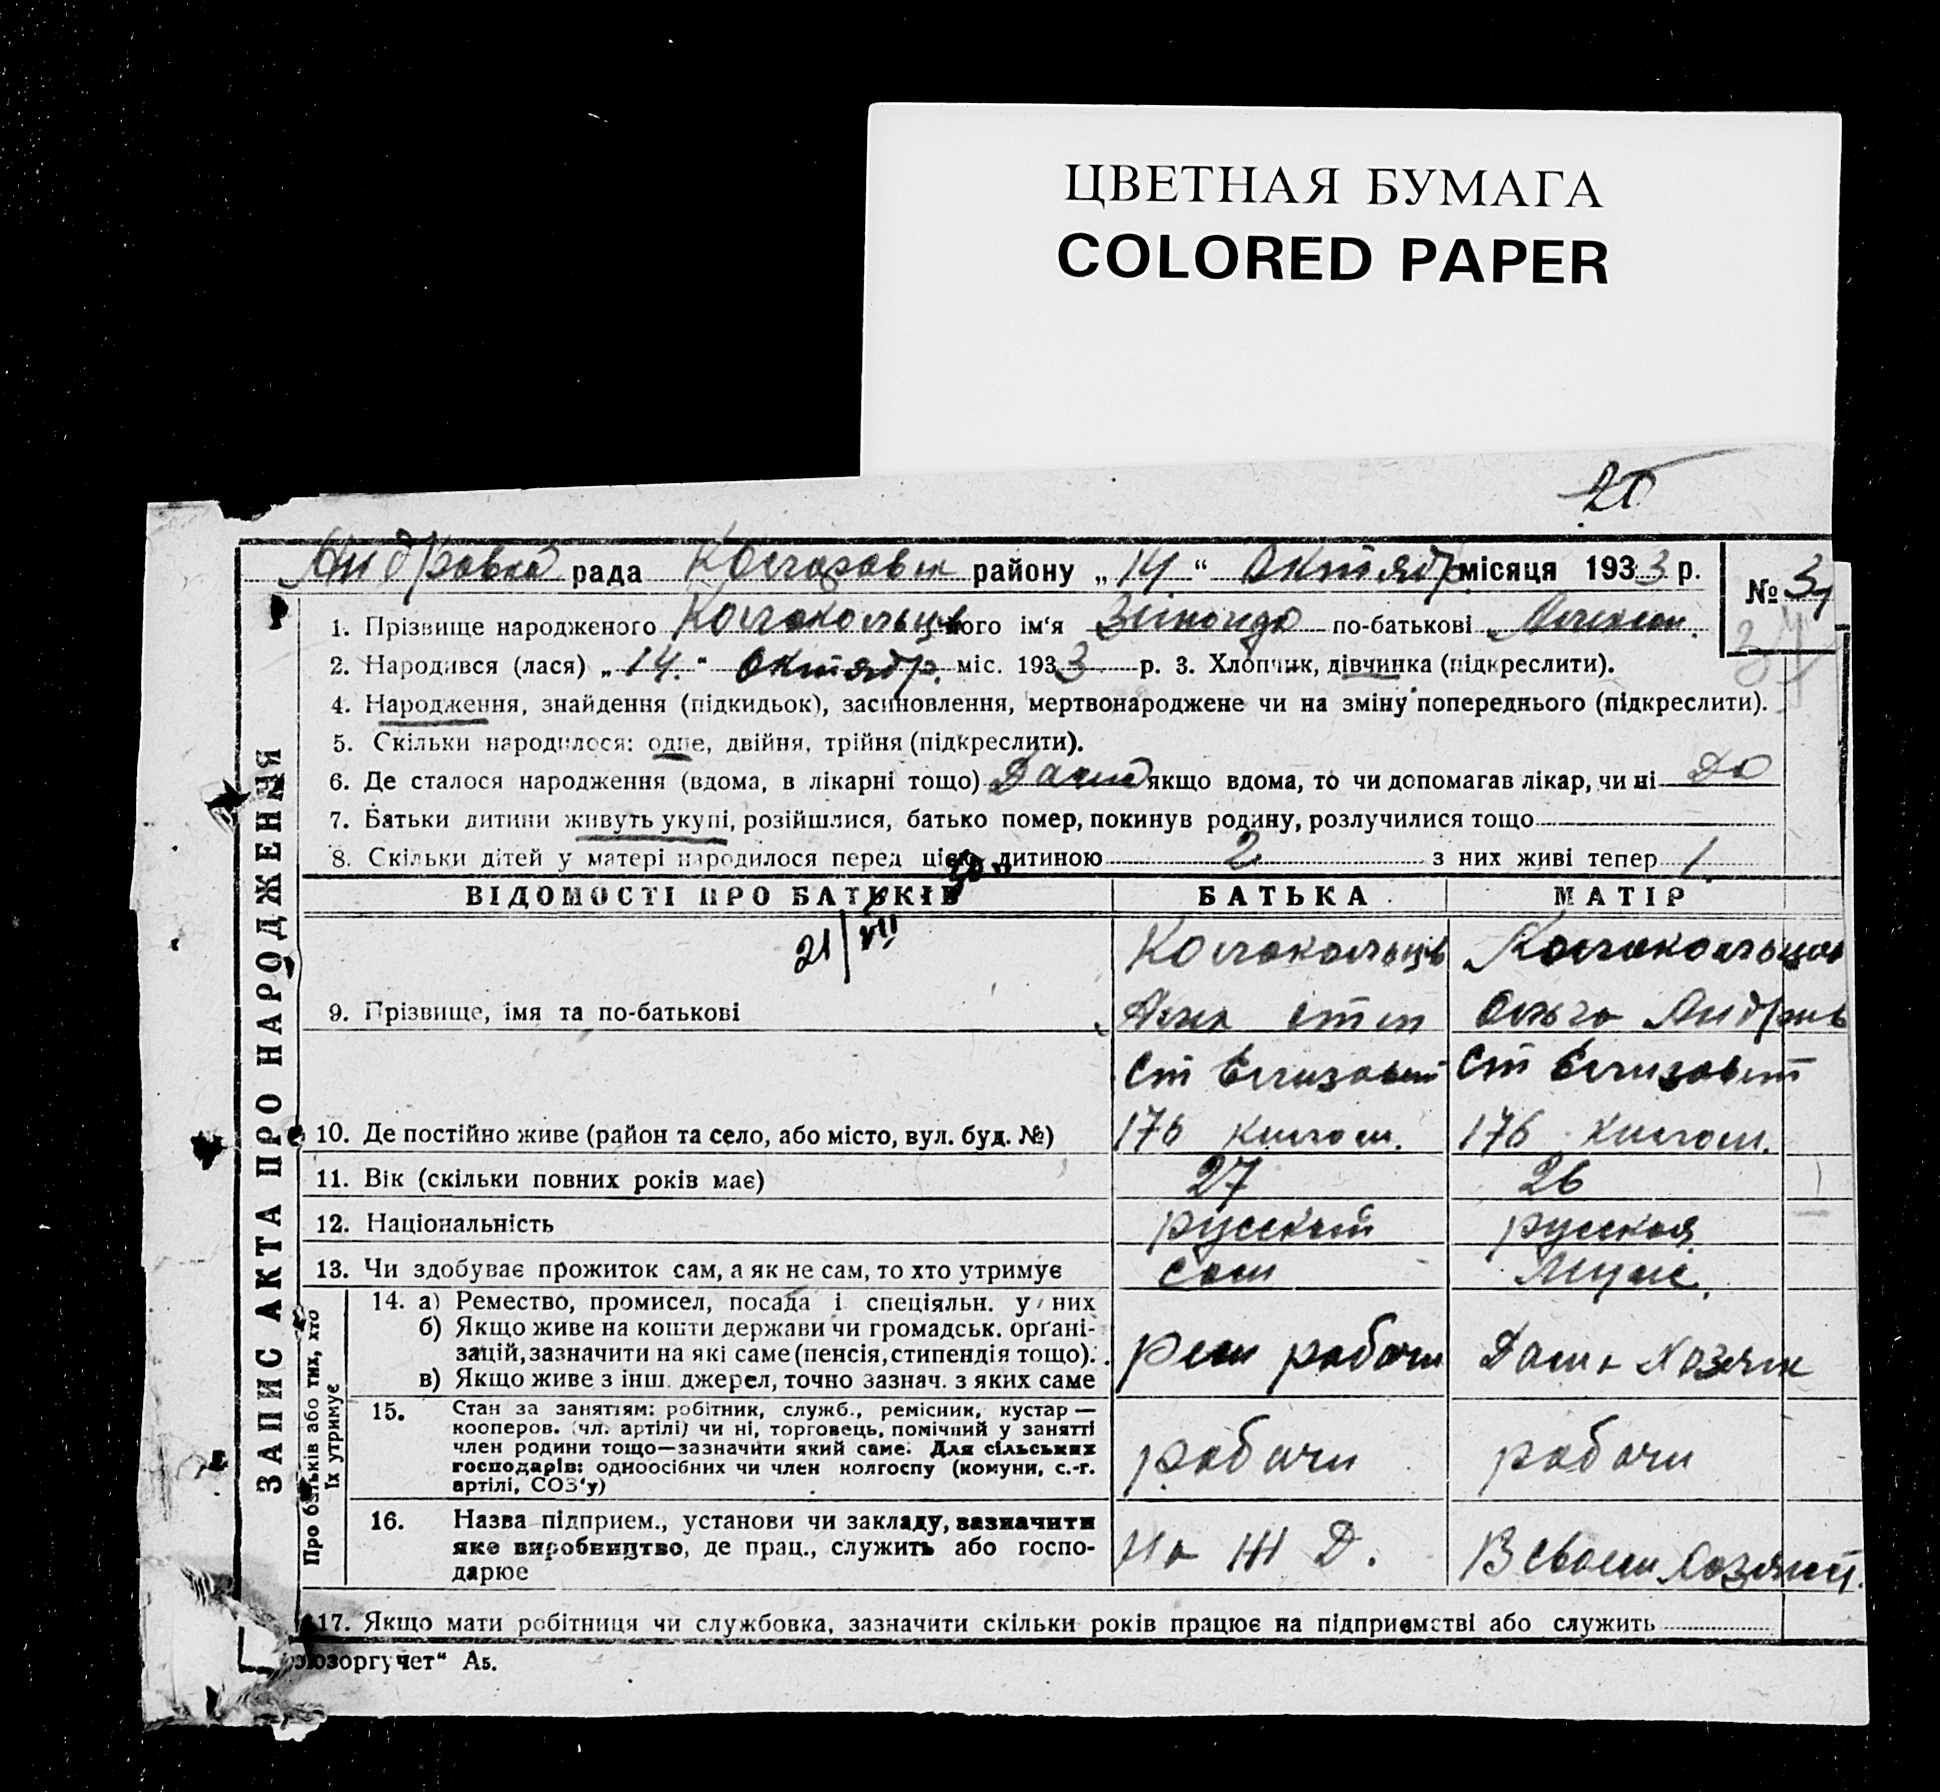 ЦВЕТНАЯ БУМАГА
COLORED PAPER
20
рада района району „14“ Октядр місяця 1933 р.
№ 31
1. Прізвище народженого Колокольцев його ім‘я по-батькові
2. Народився (лася) „14.“ Октядр. міс. 1933 р. 3. Хлопчик, дівчинка (підкреслити).
4. Народження, знайдення (підкидьок), засиновлення, мертвонароджене чи на зміну попереднього (підкреслити).
5. Скільки народилося: одне, двійня, трійня (підкреслити).
6. Де сталося народження (вдома, в лікарні тощо) Дама якщо вдома, то чи допомагав лікар, чи ні До
7. Батьки дитини живуть укупі, розійшлися, батько помер, покинув родину, розлучилися тощо
8. Скільки дітей у матері народилося перед цією дитиною 2 з них живі тепер 1.
ВІДОМОСТІ ПРО БАТЬКІВ БАТЬКА МАТІР
21/VII
Колокольцв Колокольцов
9. Прізвище, імя та по-батькові Ольга
Ст Елизовет Ст Елизовет
10. Де постійно живе (район та село, або місто, вул. буд. №) 176 килом. 176 килом.
11. Вік (скільки повних років має) 27 26
12. Національність русский русская
13. Чи здобуває прожиток сам, а як не сам, то хто утримує сам Муж.
14. а) Ремество, промисел, посада і спеціяльн. у них
б) Якщо живе на кошти держави чи громадськ. організацій, зазначити на які саме (пенсія, стипендія тощо).
в) Якщо живе з інш. джерел, точно зазнач. з яких саме
рем рабочи Дама Хозяик
15. Стан за заняттям: робітник, служб., ремісник, кустар —
кооперов. (чл. артілі) чи ні, торговець, помічний у занятті
член родини тощо—зазначити який саме. Для сільських
господарів: одноосібних чи член колгоспу (комуни, с.-г.
артілі, СОЗ‘у)
рабочи рабочи
16. Назва підприєм., установи чи закладу, зазначити
яке виробництво, де прац., служить або госпо-
дарює
На Ж Д. В своем хозяист.
17. Якщо мати робітниця чи службовка, зазначити скільки років працює на підприємстві або служить
„Союзоргучет“ А5.
ЗАПИС АКТА ПРО НАРОДЖЕННЯ
Про батьків або тих, хто
їх утримує